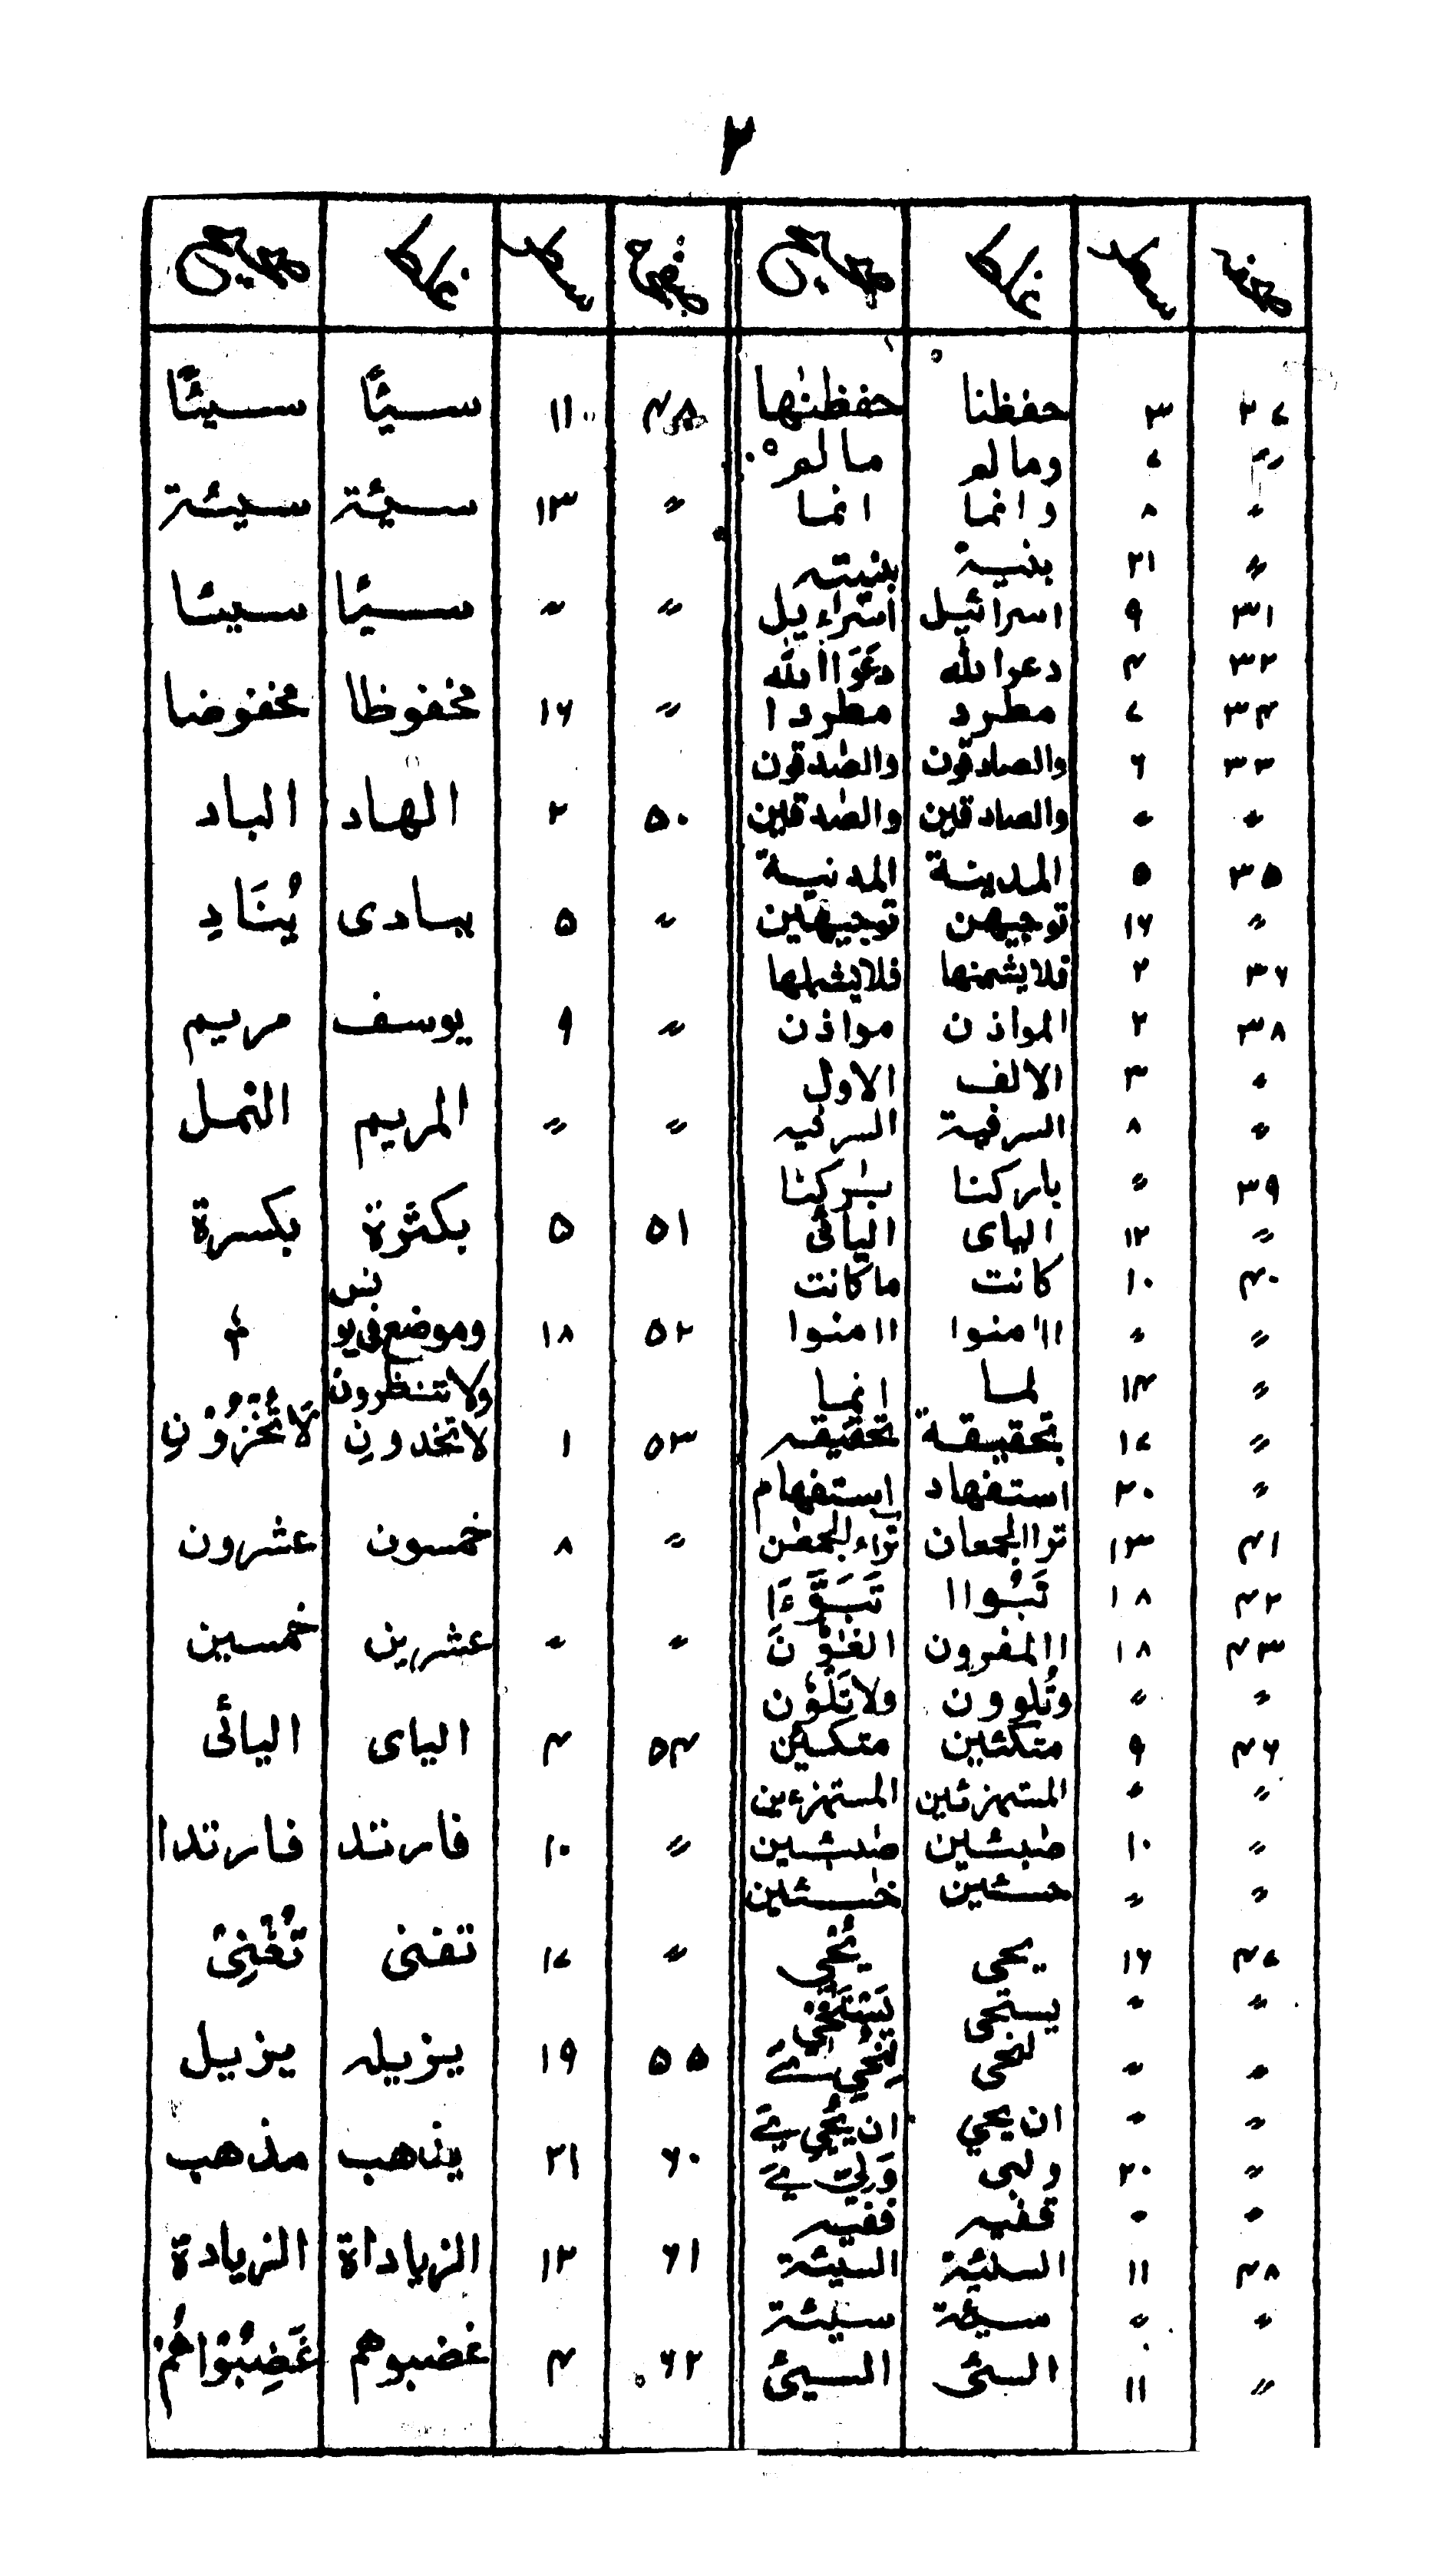 ۲
صفحہ سطر غلط صحیح صفحہ سطر غلط صحیح
۲۷ ۳ حفظنا حفظنٰها
۷ ومالم مالم
〃 ۸ وانما انما
〃 ۲۱ بنیة بنیته
۳۱ ۹ اسرائیل اسراءیل
۳۲ ۴ دعوالله دَعَوَاالله
۳۴ ۷ مطرد مطردا
۳۳ ۶ والصادقون والصٰدقون
〃 〃 والصادقین والصٰدقین
۳۵ ۵ المدینة المدنیة
〃 ۱۶ توجیهن توجیهین
۳۶ ۲ فلایشمنها فلایشملها
۳۸ ۲ المواذن مواذن
〃 ۳ الالف الاول
〃 ۸
۳۹ 〃 بارکنا بٰرکنا
〃 ۱۲ الیای الیائی
۴۰ ۱۰ کانت ماکانت
〃 〃 ااامنوا اامنوا
〃 ۱۴ لما انما
〃 ۱۷ بتحقیقة تحقیقه
〃 ۲۰ استفهاد استفهام
۴۱ ۱۳
۴۲ ۱۸ تَبُواا
۴۳ ۱۸
〃 〃 وتُلوون ولاتَلْوٗن
۴۶ ۹ متکئین متکـٔین
〃 〃 المستهزئین المستهزءین
〃 ۱۰
〃 〃
۴۷ ۱۶ یحی یُحْیٖ
〃 〃 یستحی
〃 〃 لنحی
〃 〃 ان یحیي
〃 ۲۰ ولی
〃 〃 ففیه
۴۸ ۱۱ السئیة السیئة
〃 〃 سیئة سیئة
〃 ۱۱ السئی السیئ
۴۸ ۱۱ سیًٔا سیئًا
〃 ۱۳ سیئة سیئة
〃 〃 سیئا سیئا
〃 ۱۶ مخفوظا مخفوضا
۵۰ ۲ الهاد الباد
〃 ۵ ینادی یُنَادِ
〃 ۹ یوسف مریم
〃 〃 المریم النمل
۵۱ ۵ بکثرة بکسرة
۵۲ ۱۸ وموضع فی یونس
ولاتنظرون
۵۳ ۱ لاتخدونِ لَاتُخْزُوْنِ
〃 ۸ خمسون عشرون
〃 〃 عشرین خمسین
۵۴ ۴ الیای الیائی
〃 ۱۰ فارتد فارتدا
〃 ۱۷ تفنی تُغْنِیْ
۵۵ ۱۹ یزیله یزیل
۶۰ ۲۱ یذهب مذهب
۶۱ ۱۲ الزیاداة الزیادة
۶۲ ۴ غضبوهم غَضِبُوْاهُمْ